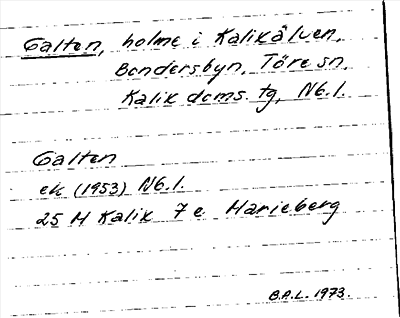 Galten, holme i Kalixälven,
Bondersbyn, Töre sn,
Kalix doms. tg, Nb. l.
Galten
ek (1953) Nb. l.
25 M Kalix 7 e Marieberg
B.A.L. 1973.